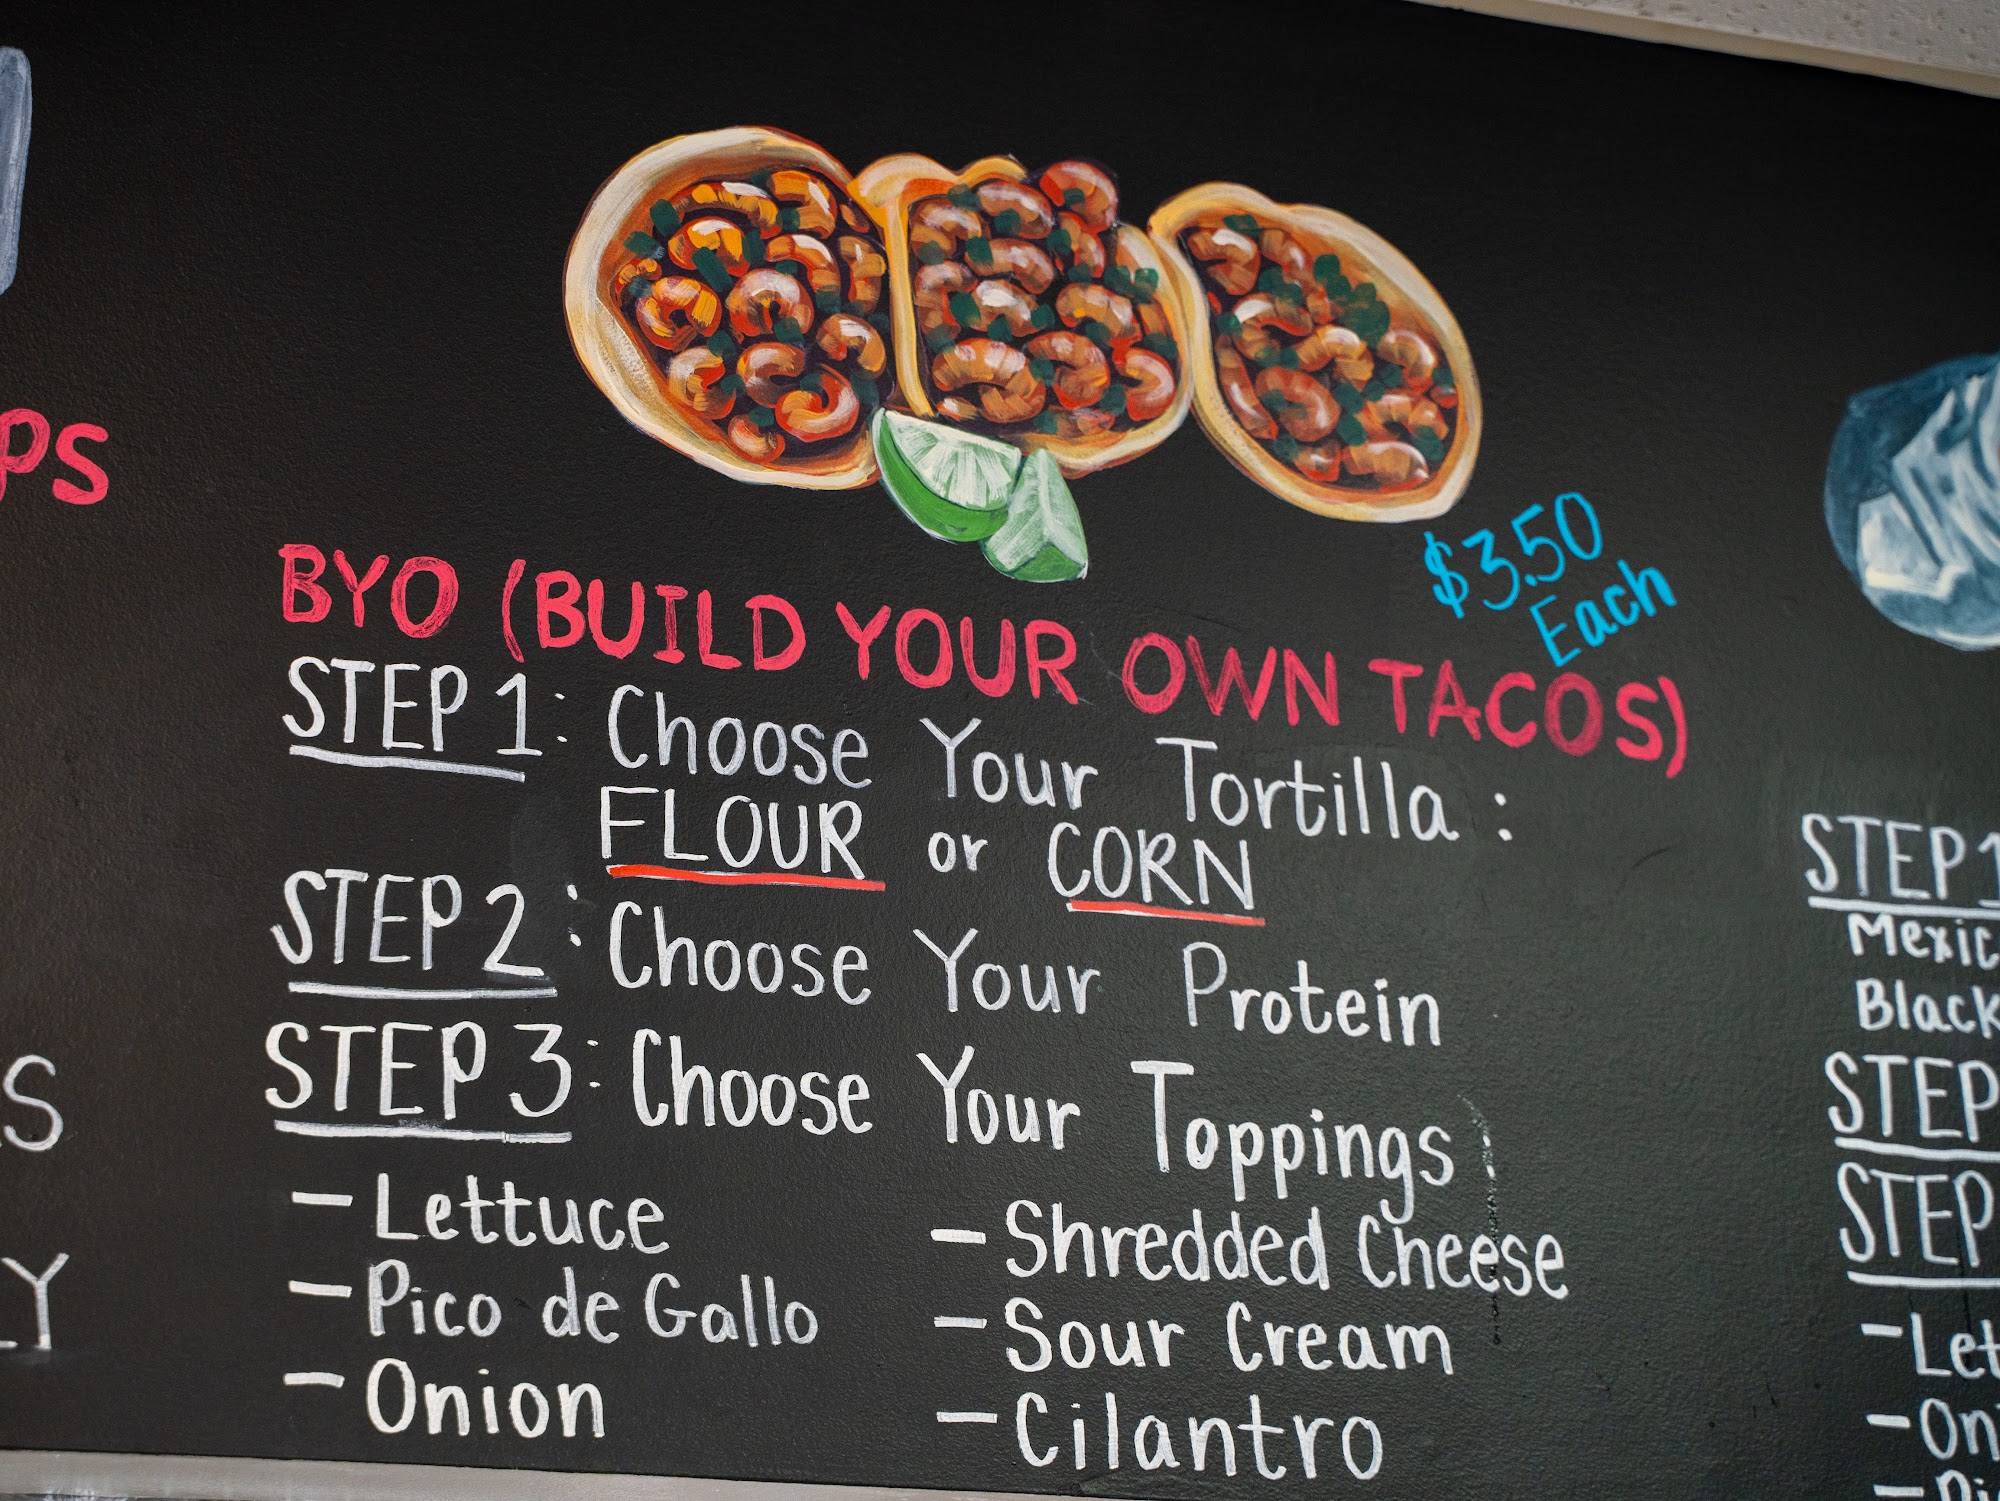 PS
$3.50
Each
BYO (BUILD YOUR OWN TACOS)
STEP 1: Choose Your Tortilla:
FLOUR or CORN
STEP 2: Choose Your Protein
STEP 3: Choose Your Toppings
- Lettuce
- Pico de Gallo
- Onion
- Shredded Cheese
- Sour Cream
- Cilantro
S
LY
STEP 1
Mexic
Black
STEP
STEP
- Let
- On